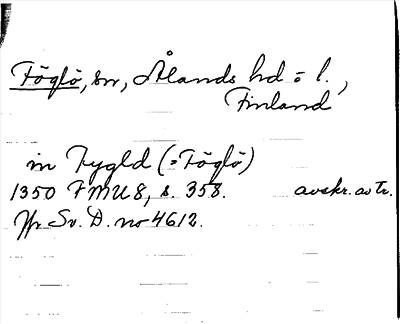 Föglö, sn, Ålands hd o l.,
Finland
in Fygld (= Föglö)
1350 FMU 8, s. 358. avskr. av tr.
Jfr Sv. D. no 4612.